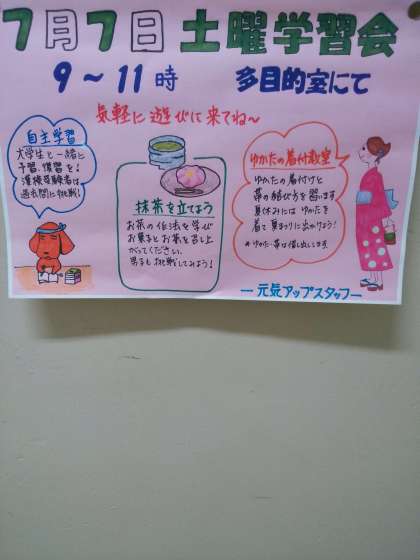 7月7日 土曜学習会
9～11時 多目的室にて
気軽に遊びに来てね～
自主学習
大学生と一緒に
予習、復習を!
漢検受験者は
過去問に挑戦!
抹茶を立てよう
お茶の作法を学び
お菓子とお茶を召し上
がってください。
男子も挑戦してみよう!
ゆかたの着付教室
ゆかたの着付けと
帯の結び方を習います
夏休みには ゆかたを
着て 夏まつりに出かけよう!
ゆかた・帯は貸し出します
－元気アップスタッフ－